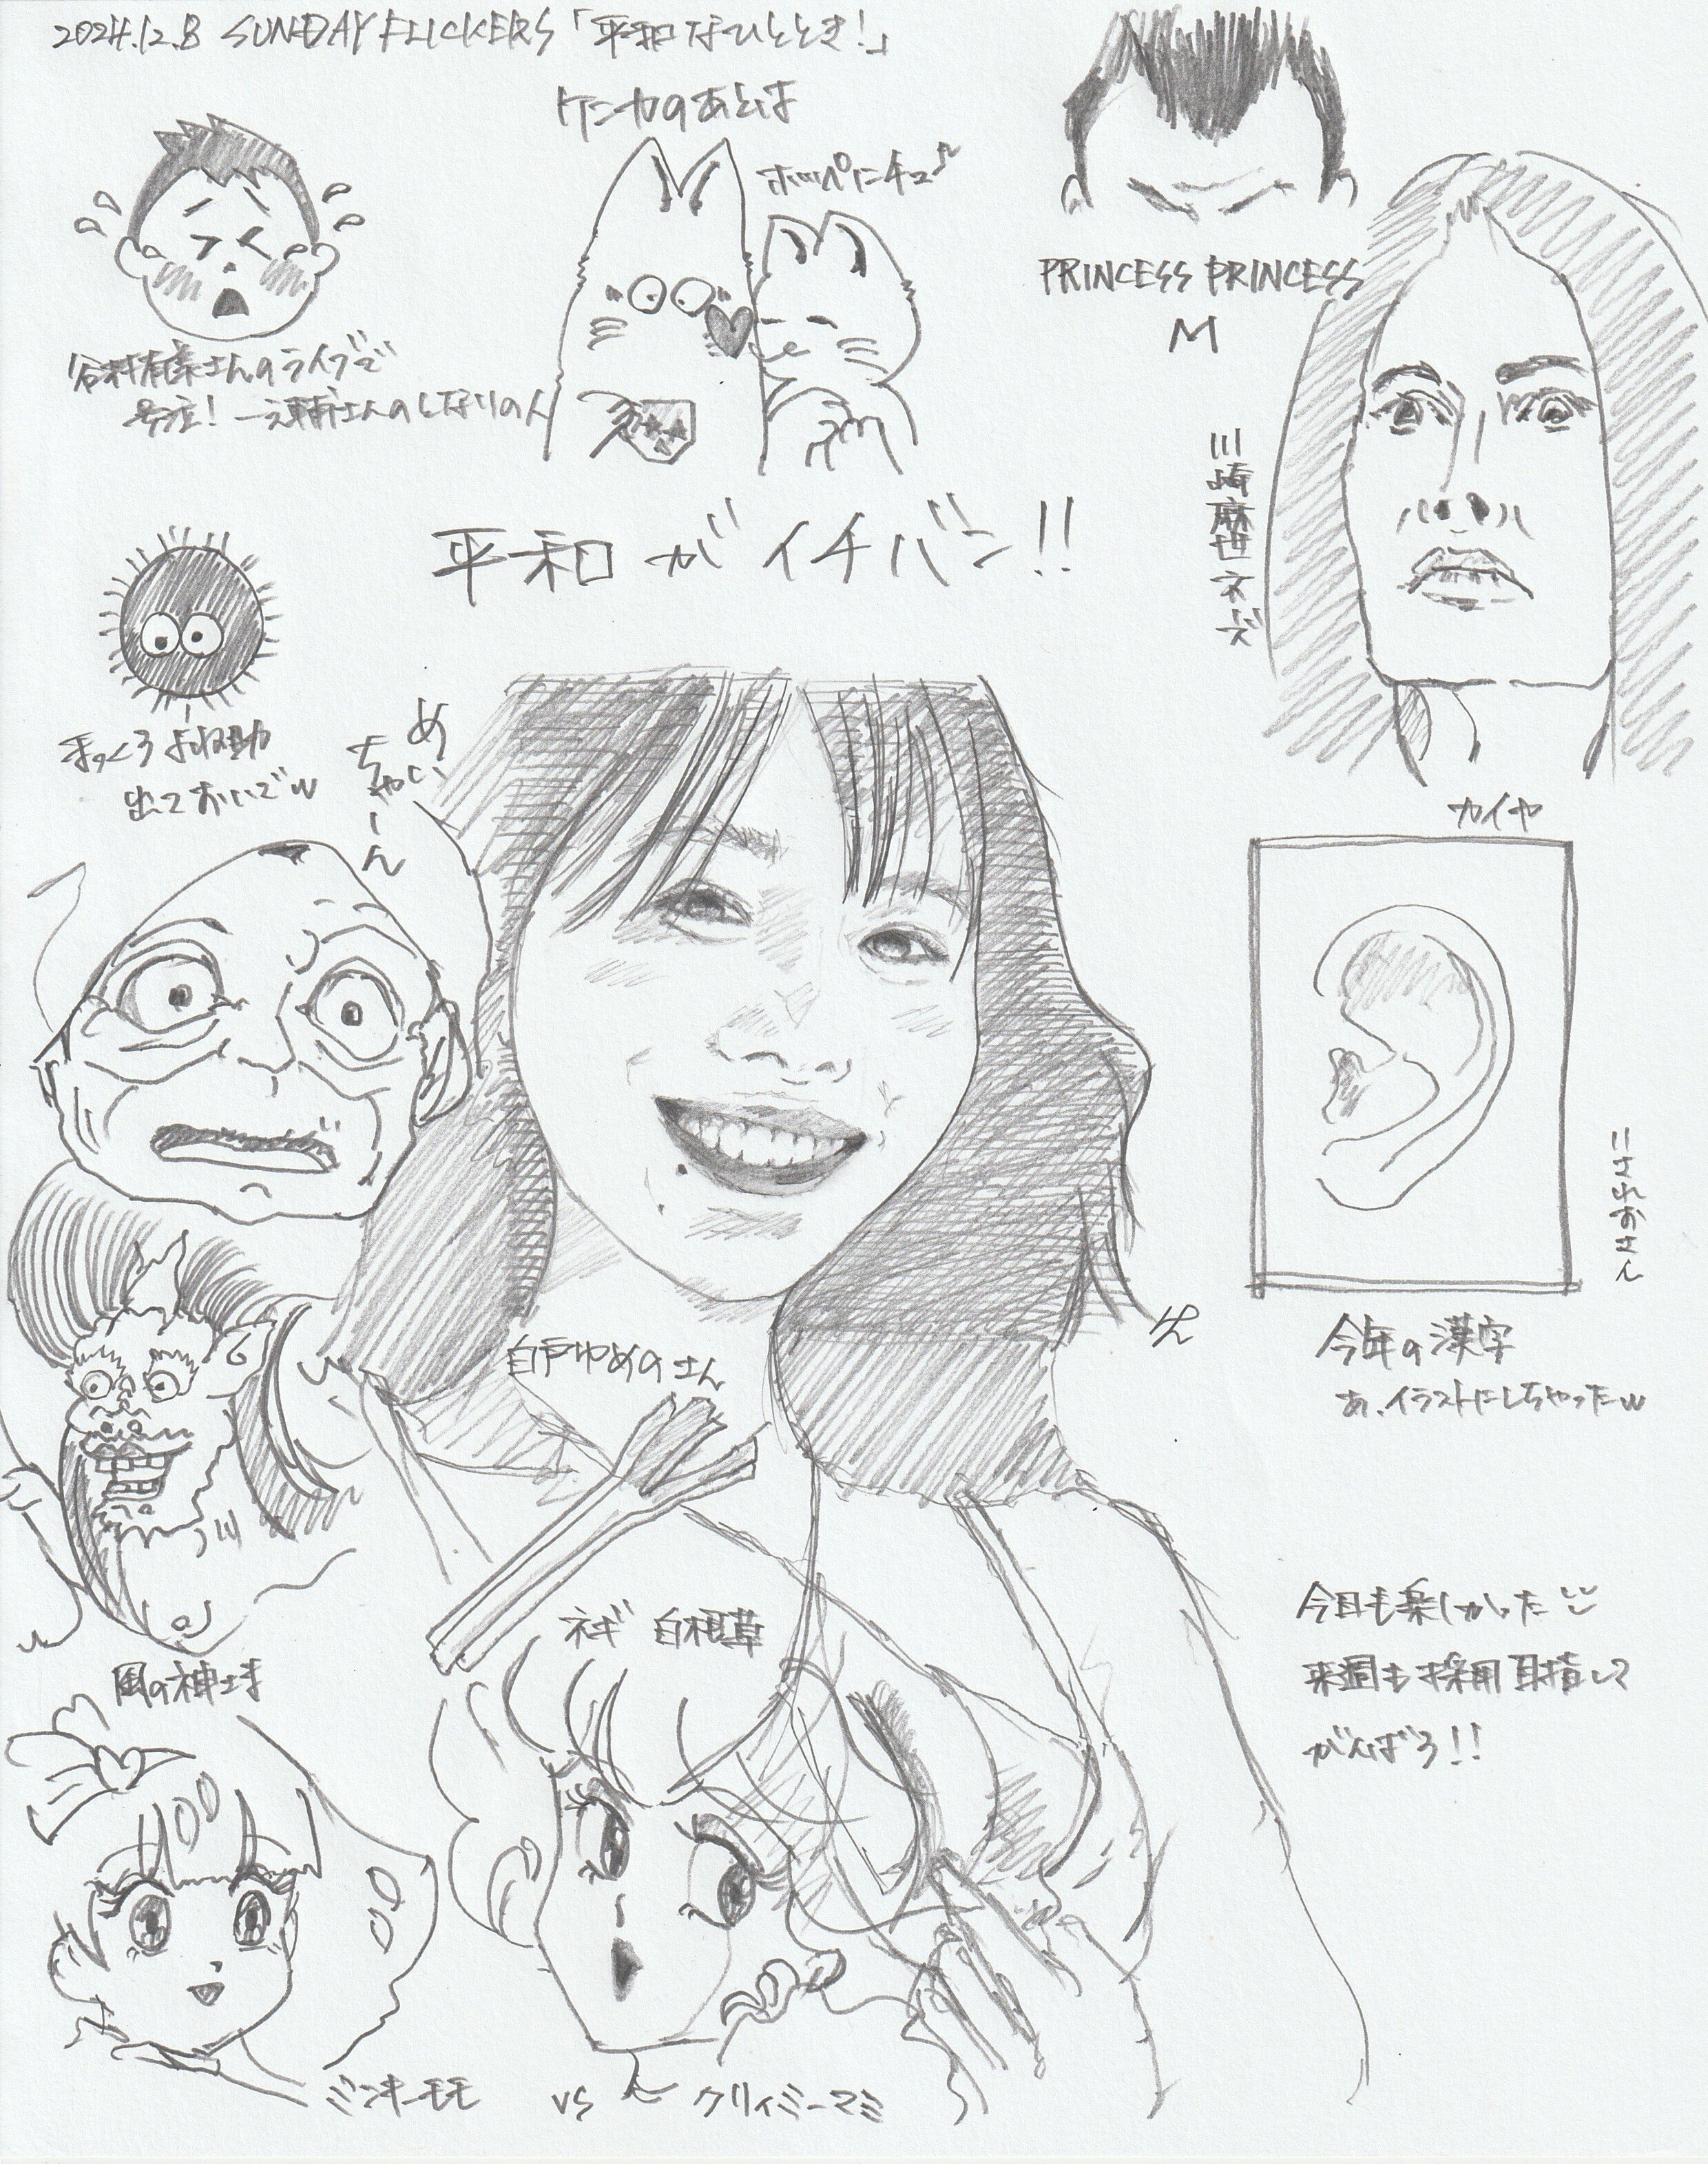 2024.12.8 SUNDAY FLICKERS「平和なひととき!」
ケンカのあとは
ホッペにチュ♪
谷村有美さんのライブで
号泣! 一之輔さんのとなりの人
PRINCESS PRINCESS
M
川崎麻世 ネズ
カイヤ
平和がイチバン!!
まっくろ よね助
出ておいでw
めいちゃーん
白戸ゆめのさん
けん
いされおさん
今年の漢字
あ、イラストにしちゃったw
風の神さま
ネギ 白根草
今日も楽しかった
来週も採用目指して
がんばろ!!
ミンキーモモ vs クリィミーマミ